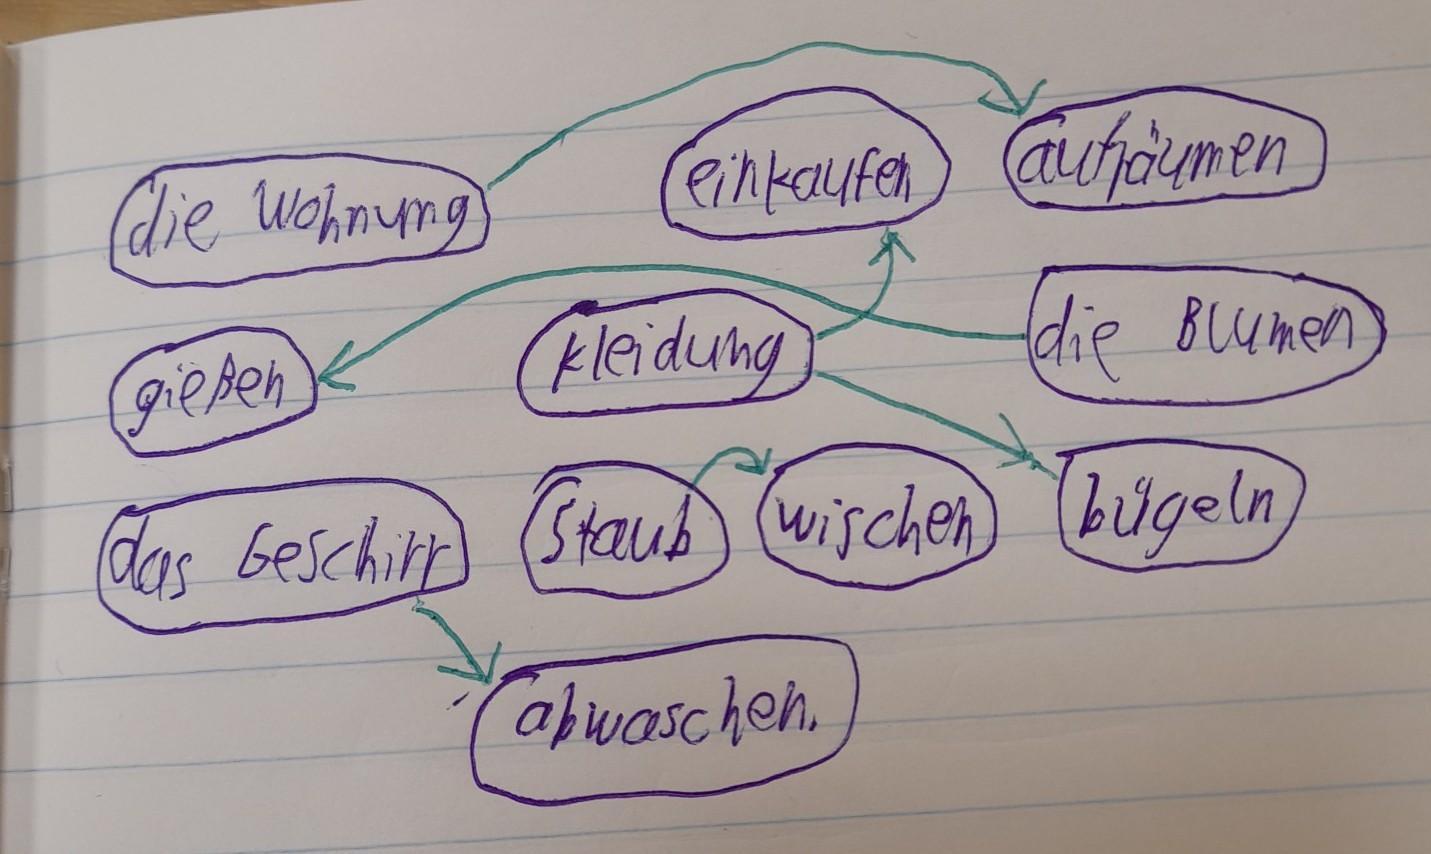 die Wohnung
einkaufen
aufräumen
gießen
kleidung
die Blumen
das Geschirr
Staub
wischen
bügeln
abwaschen.